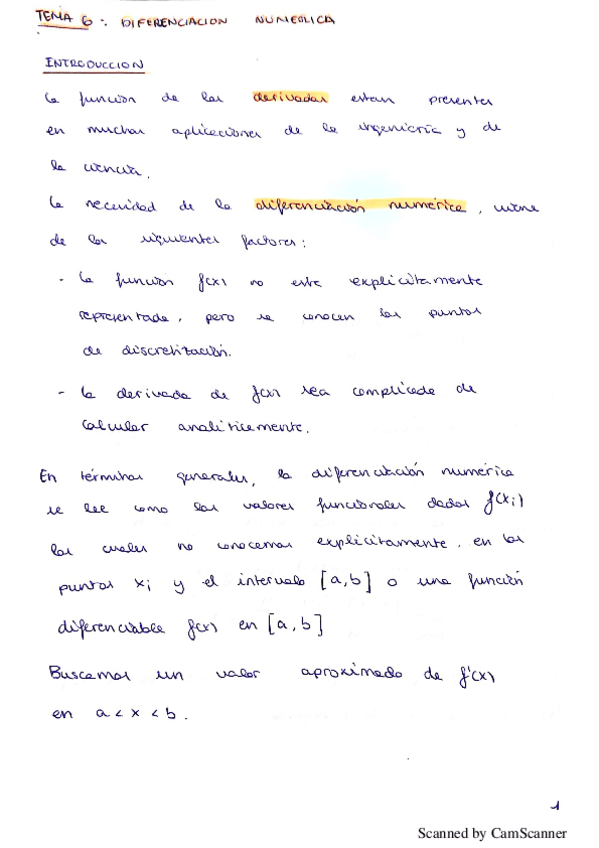 TEMA 6: DIFERENCIACION NUMERICA
INTRODUCCION
La función de las derivadas estan presentes
en muchas aplicaciones de la ingenieria y de
la ciencia.
La necesidad de la diferenciación numérica, viene
de los siguientes factores:
- La función f(x) no este explicitamente
representada, pero se conocen los puntos
de discretización.
- la derivada de f(x) sea complicada de
calcular analiticamente.
En términos generales, la diferenciación numérica
se lee como los valores funcionales dados f(xi)
los cuales no conocemos explicitamente, en los
puntos xi y el intervalo [a,b] o una función
diferenciable f(x) en [a,b]
Buscamos un valor aproximado de f'(x)
en a < x < b.
1
Scanned by CamScanner